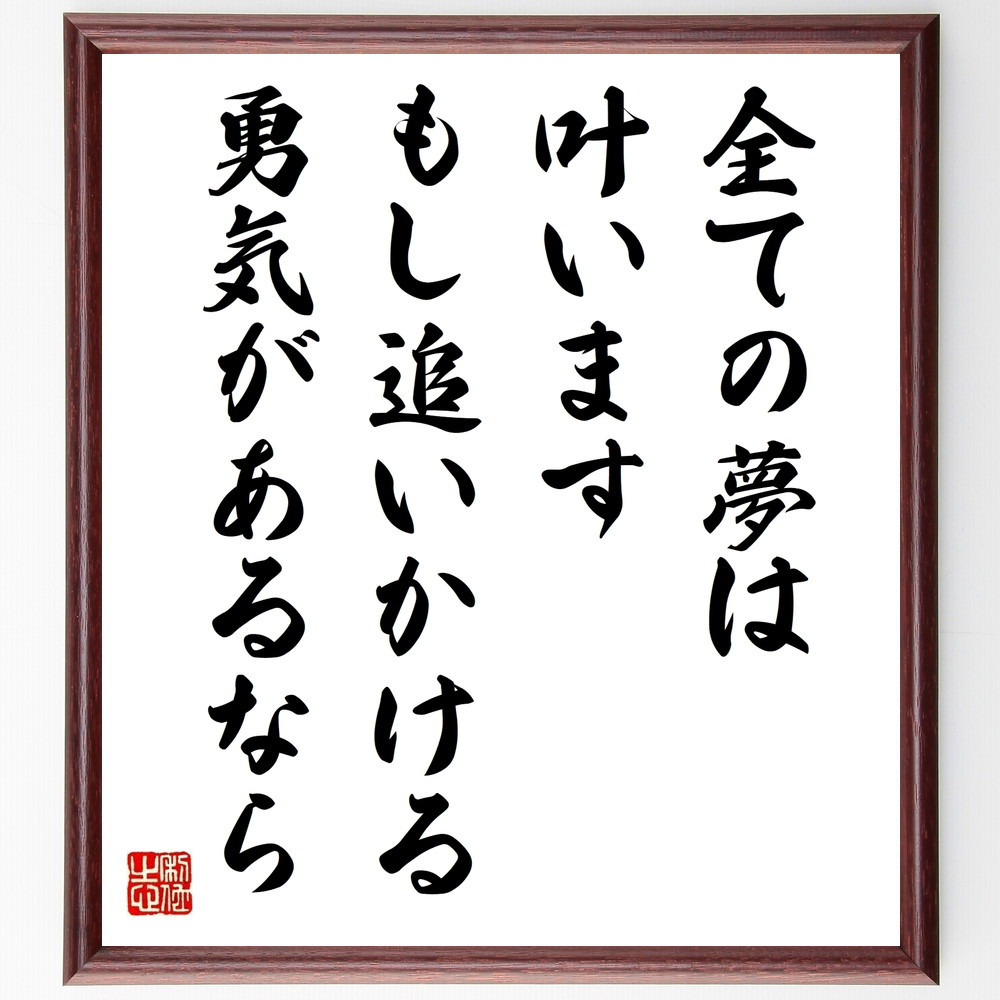 全ての夢は
叶います
もし追いかける
勇気があるなら